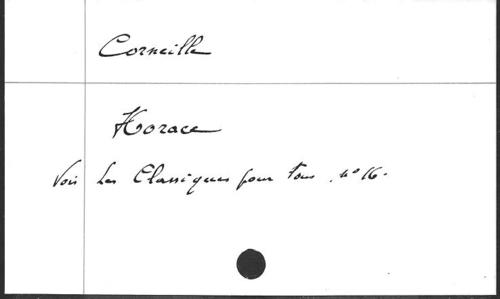 Corneille
Horace
Voir Les Classiques pour Tous, nº 16.